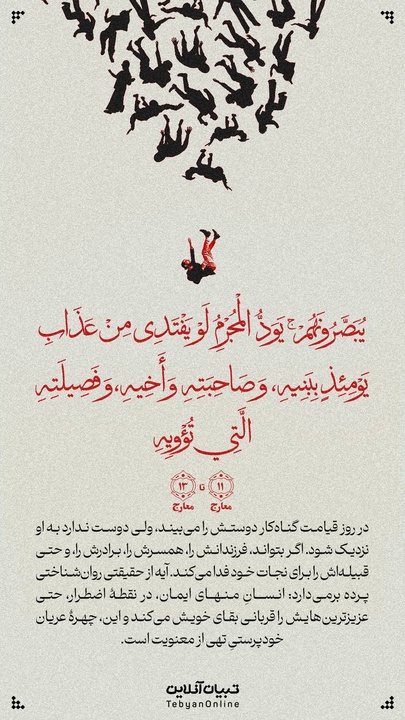 يُبَصَّرُونَهُمْ ۚ يَوَدُّ الْمُجْرِمُ لَوْ يَفْتَدِي مِنْ عَذَابِ
يَوْمِئِذٍ بِبَنِيهِ، وَصَاحِبَتِهِ وَأَخِيهِ، وَفَصِيلَتِهِ
الَّتِي تُؤْوِيهِ
۱۱ تا ۱۳
معارج معارج
در روز قیامت گناه‌کار دوستش را می‌بیند، ولی دوست ندارد به او
نزدیک شود. اگر بتواند، فرزندانش را، همسرش را، برادرش را، و حتی
قبیله‌اش را برای نجات خود فدا می‌کند. آیه از حقیقتی روان‌شناختی
پرده برمی‌دارد: انسانِ منهای ایمان، در نقطهٔ اضطرار، حتی
عزیزترین‌هایش را قربانی بقای خویش می‌کند و این، چهرهٔ عریان
خودپرستیِ تهی از معنویت است.
تبیان آنلاین
TebyanOnline